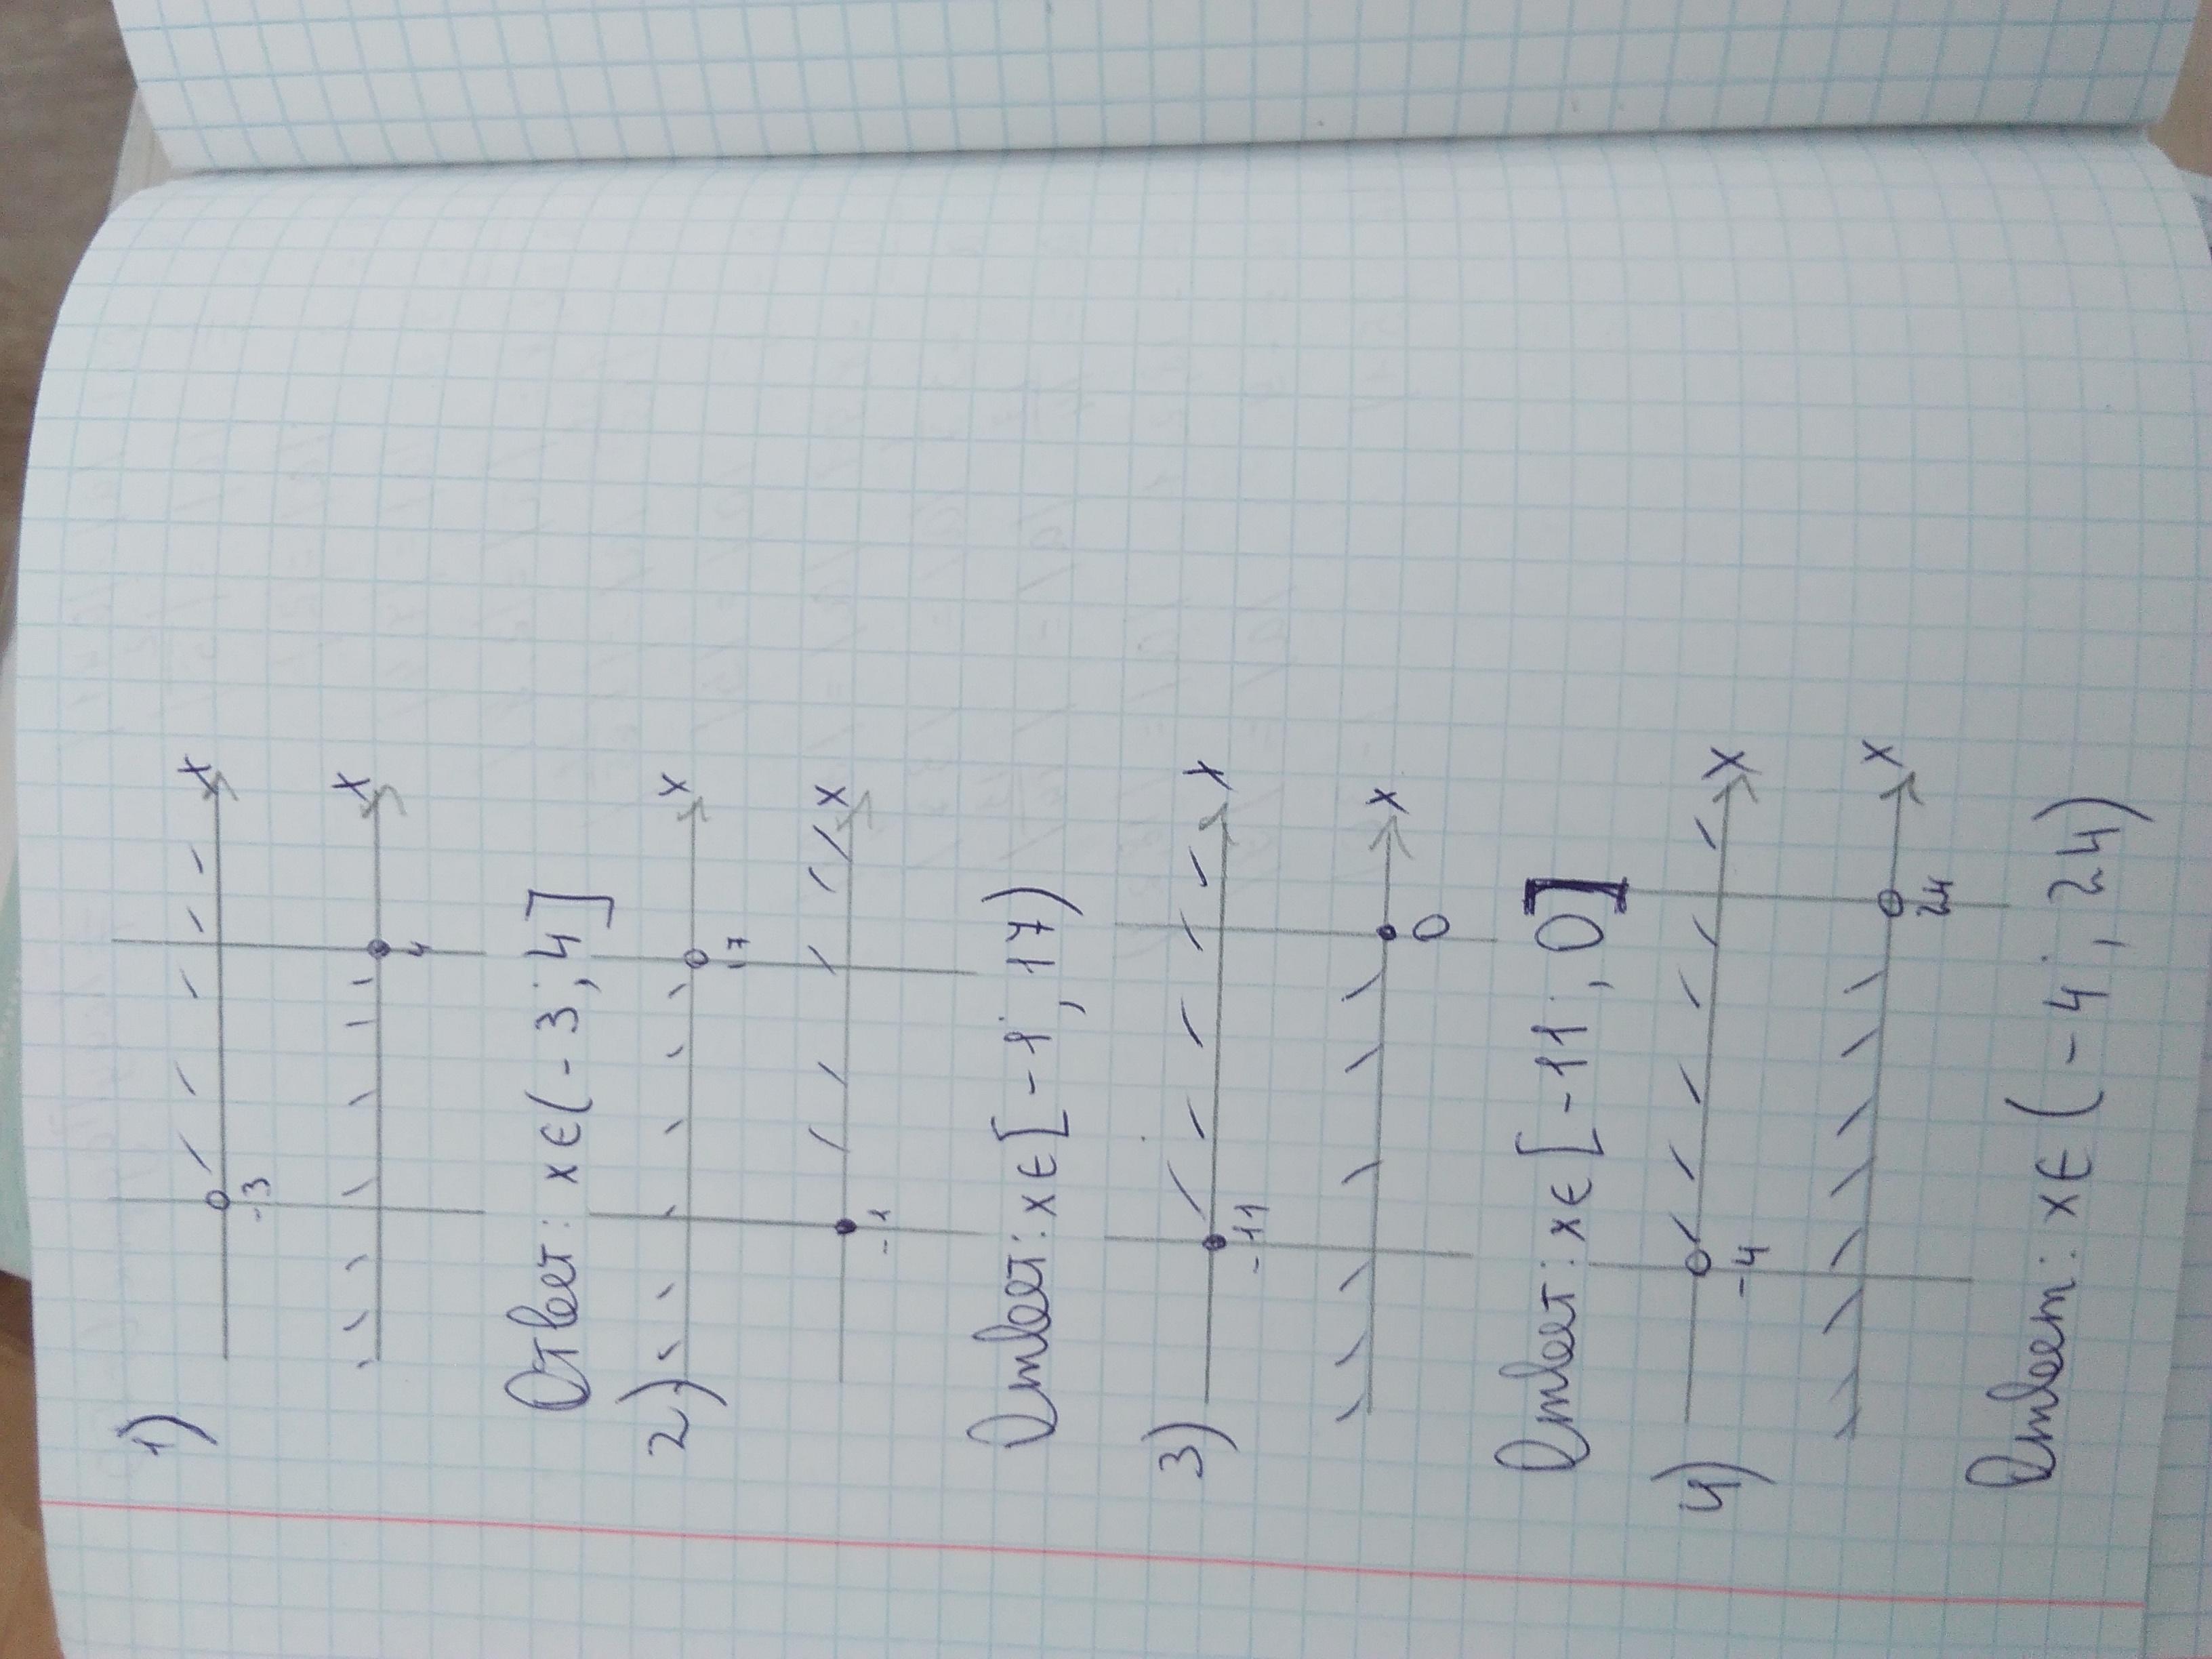 1)
x
-3
x
4
Ответ: x∈(-3; 4]
2)
x
17
x
-1
Ответ: x∈[-1; 17)
3)
x
-11
x
0
Ответ: x∈[-11; 0]
4)
x
-4
x
24
Ответ: x∈(-4; 24)